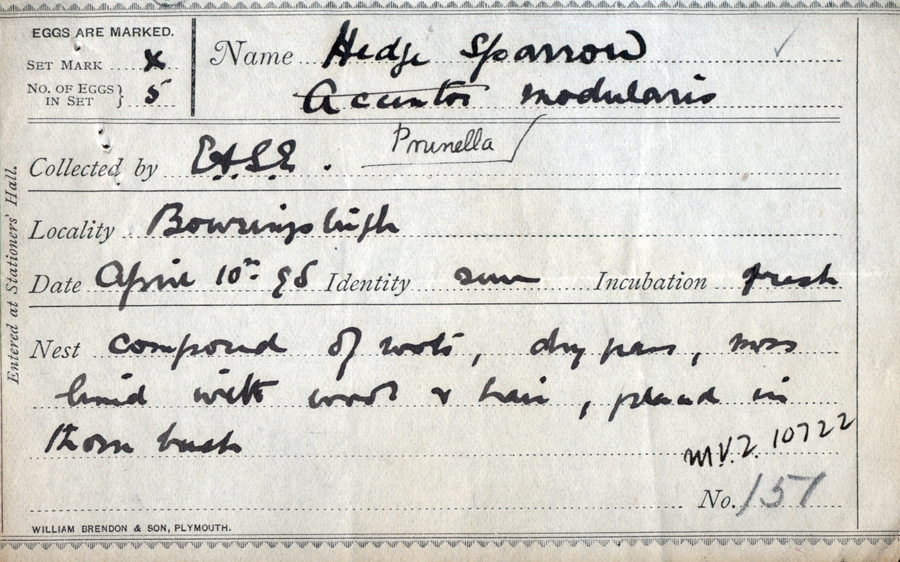 EGGS ARE MARKED.
SET MARK X
NO. OF EGGS IN SET } 5
Name Hedge Sparrow
Accentor modularis
Prunella
Collected by
Locality Bowringsleigh
Date April 10th 98 Identity seen Incubation fresh
Nest composed of roots, dry grass, moss
lined with wool & hair, placed in
thorn bush
M.V.Z. 10722
No. 151
WILLIAM BRENDON & SON, PLYMOUTH.
Entered at Stationers' Hall.